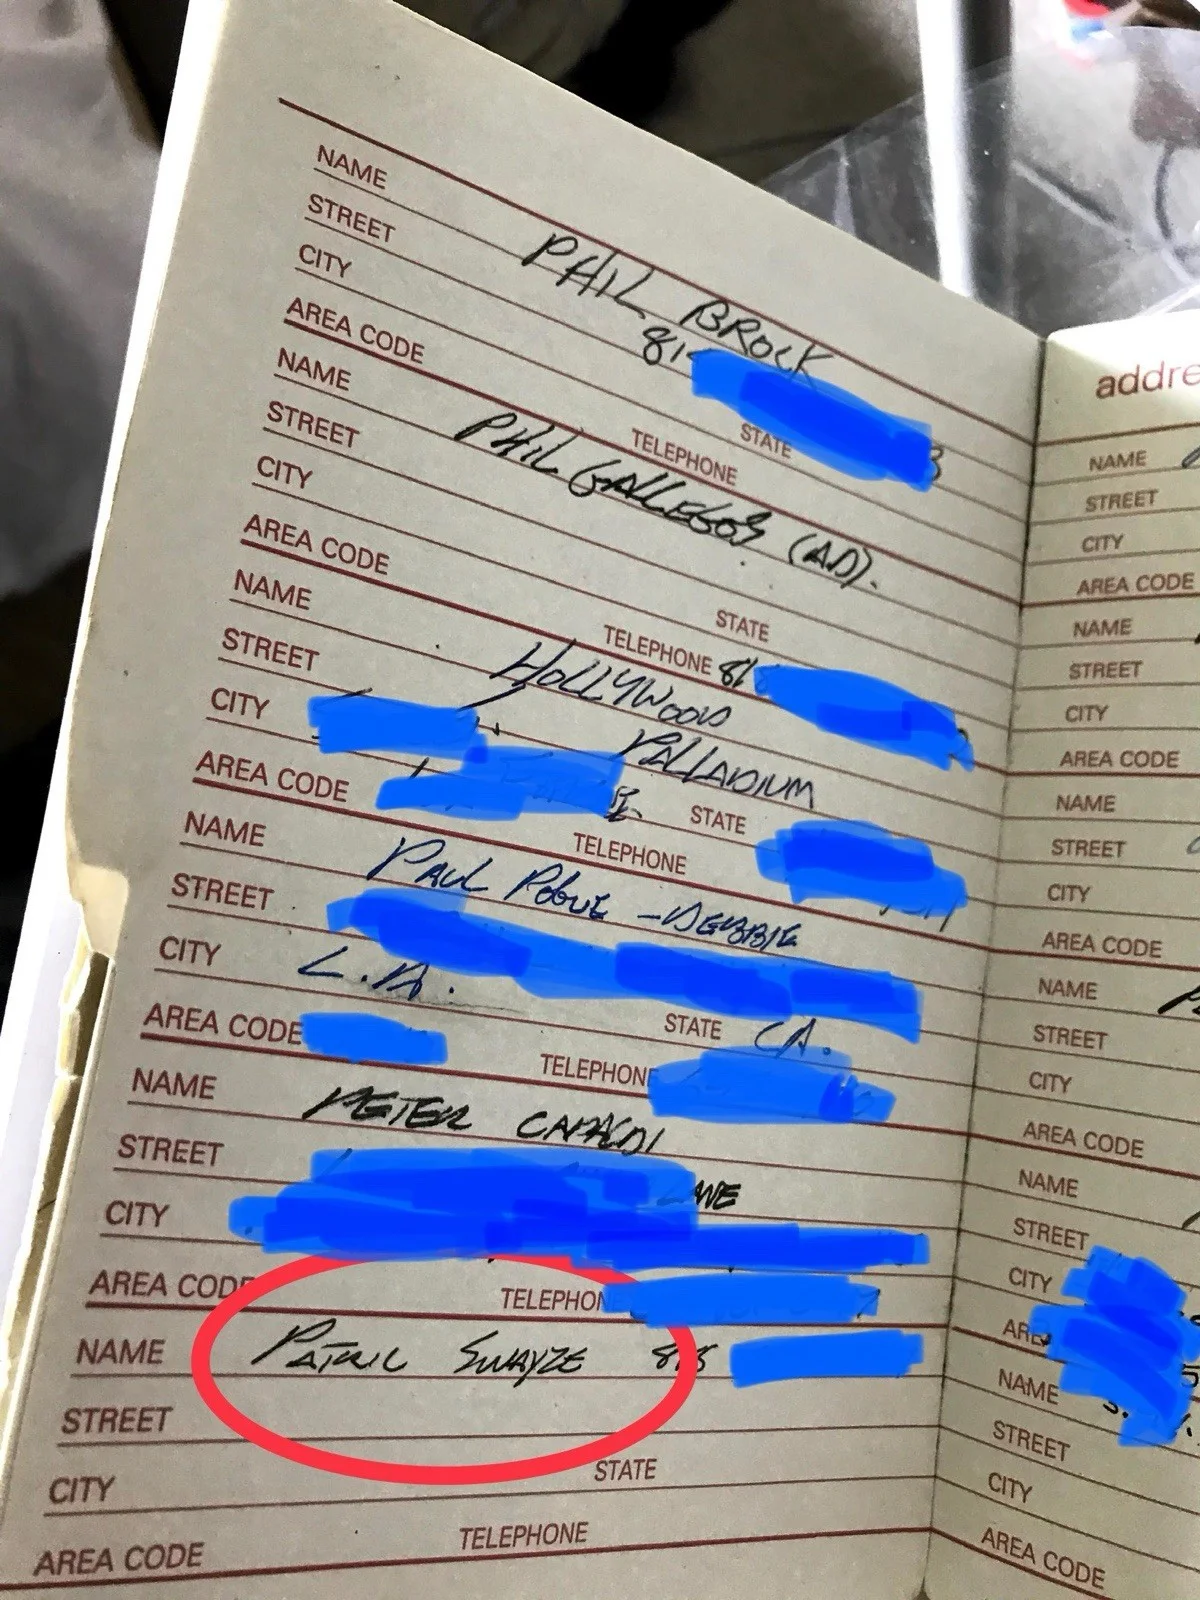 NAME
PHIL BROCK
STREET
81
CITY
STATE
AREA CODE
TELEPHONE
NAME
PHIL GALLEGOS (AD).
STREET
CITY
STATE
AREA CODE
TELEPHONE 81
NAME
HOLLYWOOD
STREET
PALLADIUM
CITY
STATE
AREA CODE
TELEPHONE
NAME
PAUL POGUE - DEBBIE
STREET
CITY
L.A.
STATE
CA.
AREA CODE
TELEPHONE
NAME
PETER CAPALDI
STREET
LANE
CITY
AREA CODE
TELEPHON
NAME
PATRIC SWAYZE 818
STREET
CITY
STATE
AREA CODE
TELEPHONE
addre
NAME
STREET
CITY
AREA CODE
NAME
STREET
CITY
AREA CODE
NAME
STREET
CITY
AREA CODE
NAME
STREET
CITY
AREA CODE
NAME
STREET
CITY
ARE
NAME
STREET
CITY
AREA CODE